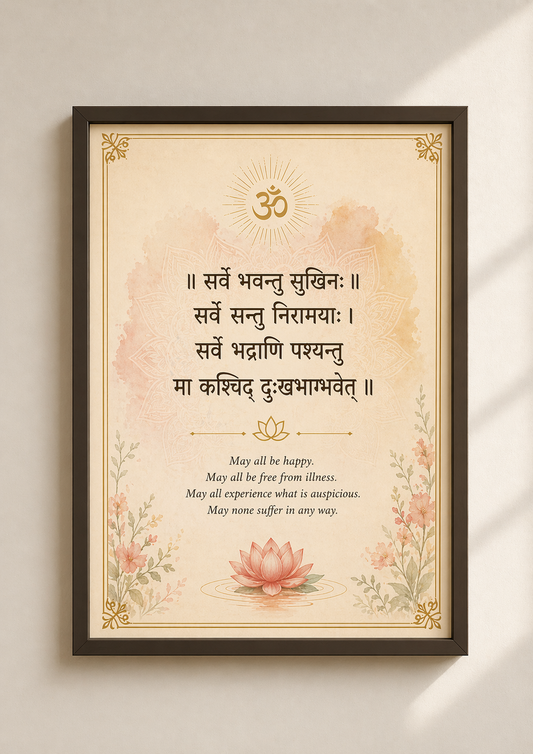 ॐ
॥ सर्वे भवन्तु सुखिनः॥
सर्वे सन्तु निरामयाः ।
सर्वे भद्राणि पश्यन्तु
मा कश्चिद् दुःखभाग्भवेत् ॥
May all be happy.
May all be free from illness.
May all experience what is auspicious.
May none suffer in any way.